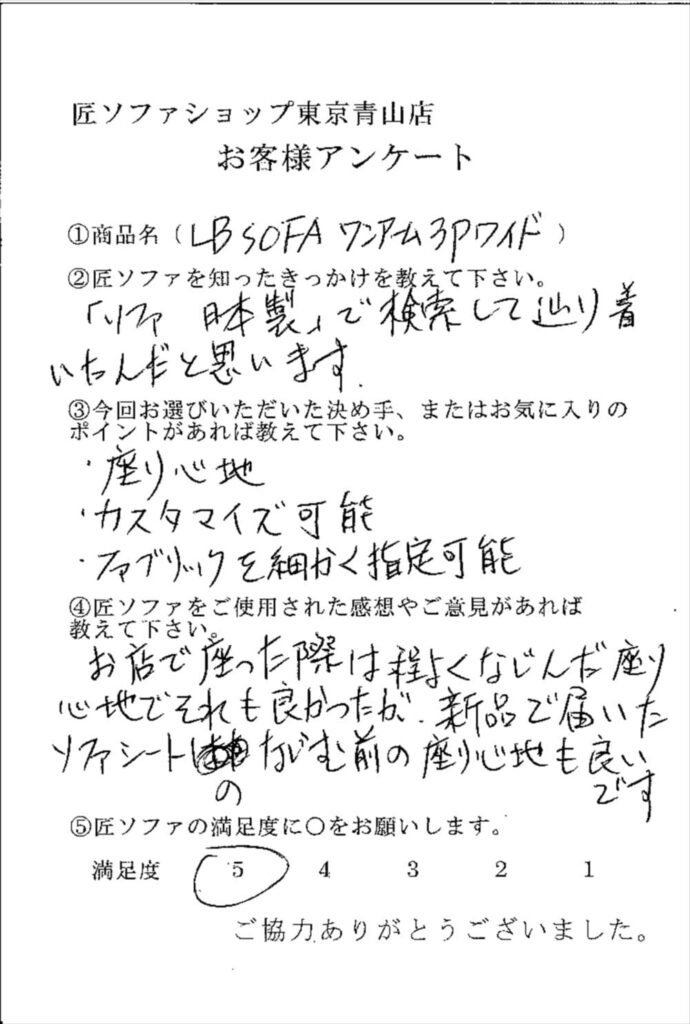 匠ソファショップ東京青山店
お客様アンケート
①商品名（LB SOFA ワンアーム3Pワイド）
②匠ソファを知ったきっかけを教えて下さい。
「ソファ 日本製」で検索して辿り着
いたんだと思います.
③今回お選びいただいた決め手、またはお気に入りの
ポイントがあれば教えて下さい。
・座り心地
・カスタマイズ可能
・ファブリックを細かく指定可能
④匠ソファをご使用された感想やご意見があれば
教えて下さい。
お店で座った際は程よくなじんだ座り
心地でそれも良かったが、新品で届いた
ソファシートのなじむ前の座り心地も良い
です
⑤匠ソファの満足度に○をお願いします。
満足度 5 4 3 2 1
ご協力ありがとうございました。